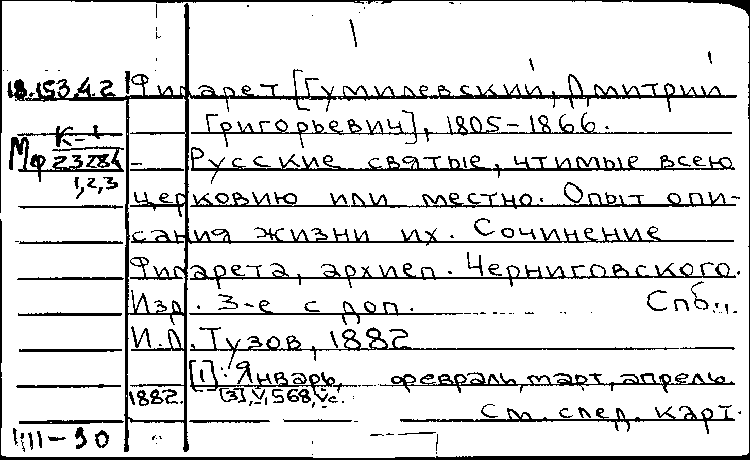 18.153.4.2 Филарет [Гумилевский, Дмитрий
Григорьевич], 1805-1866.
К-1
Мф 23284 - Русские святые, чтимые всею
1,2,3
церковию или местно. Опыт опи-
сания жизни их. Сочинение
Филарета, архиеп. Черниговского.
Изд. 3-е с доп. Спб.,
И.Л. Тузов, 1882
[1]. Январь, февраль, март, апрель.
1882. [3], V, 568, Vс.
См. след. карт.